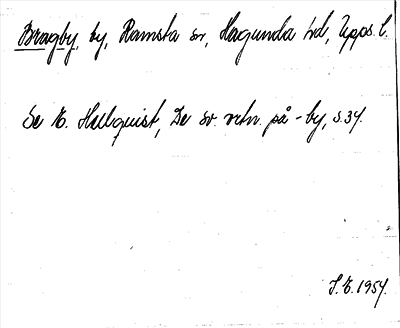 Bragby, by, Ramsta sn, Hagunda hd, Upps. l.
Se E. Hellquist, De sv. ortn. på -by, s. 34.
S. E. 1954.